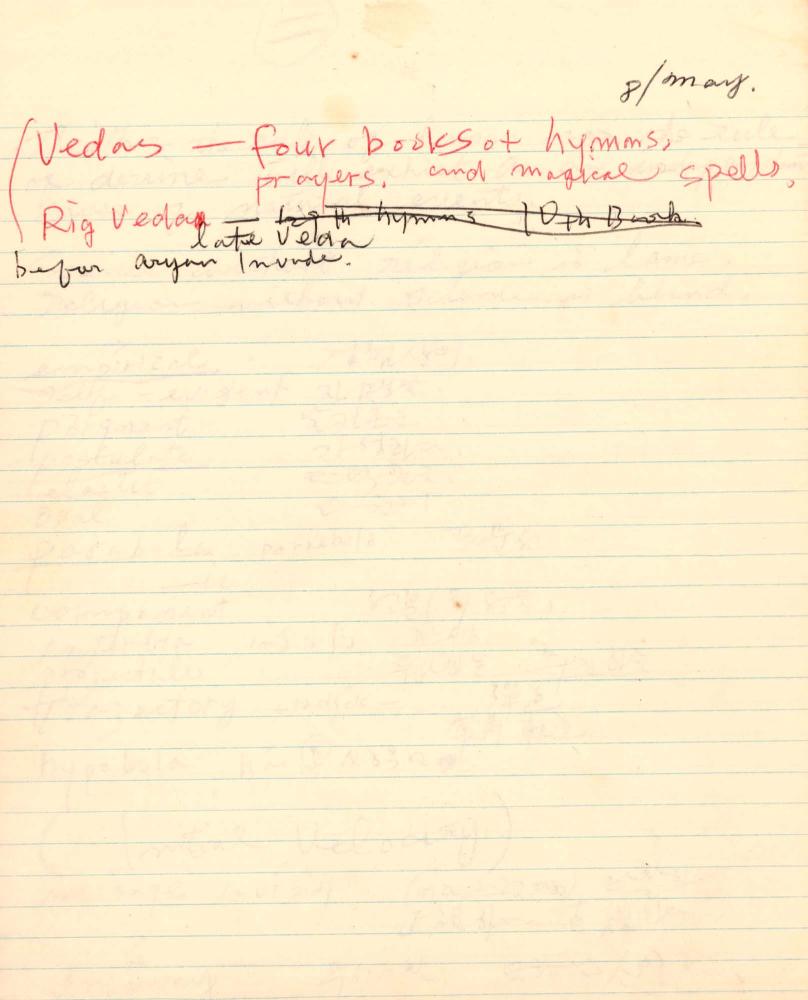 8/may.
Vedas — four books of hymms,
prayers, and magical spells,
Rig Vedas — hymns 10th Book.
late Veda
befor aryan Invade.